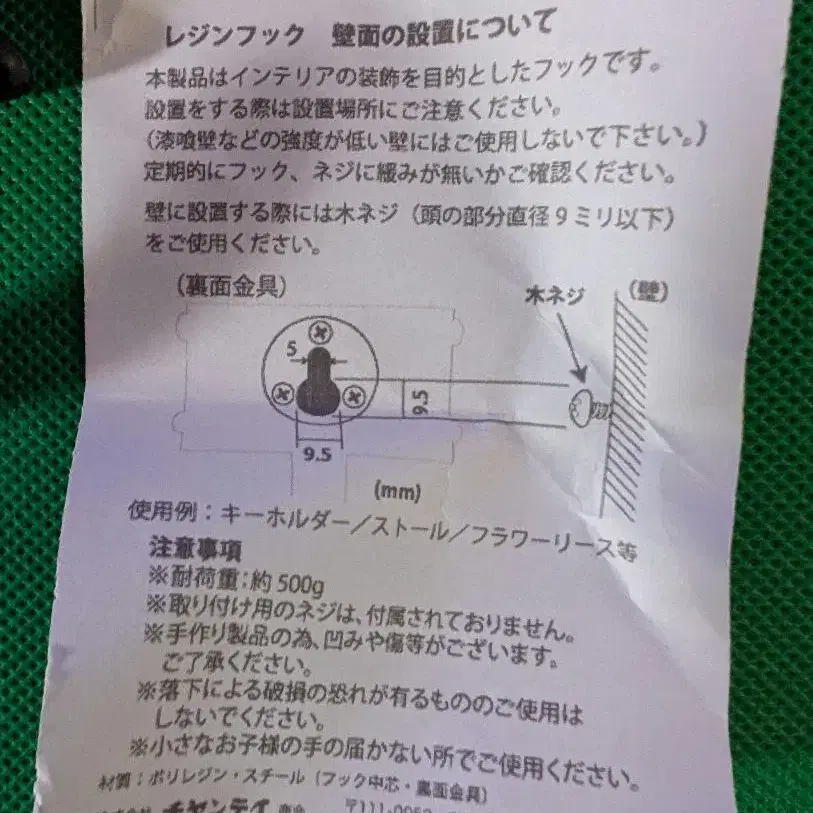 レジンフック　壁面の設置について
本製品はインテリアの装飾を目的としたフックです。
設置をする際は設置場所にご注意ください。
（漆喰壁などの強度が低い壁にはご使用しないで下さい。）
定期的にフック、ネジに緩みが無いかご確認ください。
壁に設置する際には木ネジ（頭の部分直径９ミリ以下）
をご使用ください。
（裏面金具）
木ネジ
（壁）
5
9.5
9.5
(mm)
使用例：キーホルダー／ストール／フラワーリース等
注意事項
※耐荷重：約 500g
※取り付け用のネジは、付属されておりません。
※手作り製品の為、凹みや傷等がございます。
ご了承ください。
※落下による破損の恐れが有るもののご使用は
しないでください。
※小さなお子様の手の届かない所でご使用ください。
材質：ポリレジン・スチール（フック中芯・裏面金具）
チヤンテイ